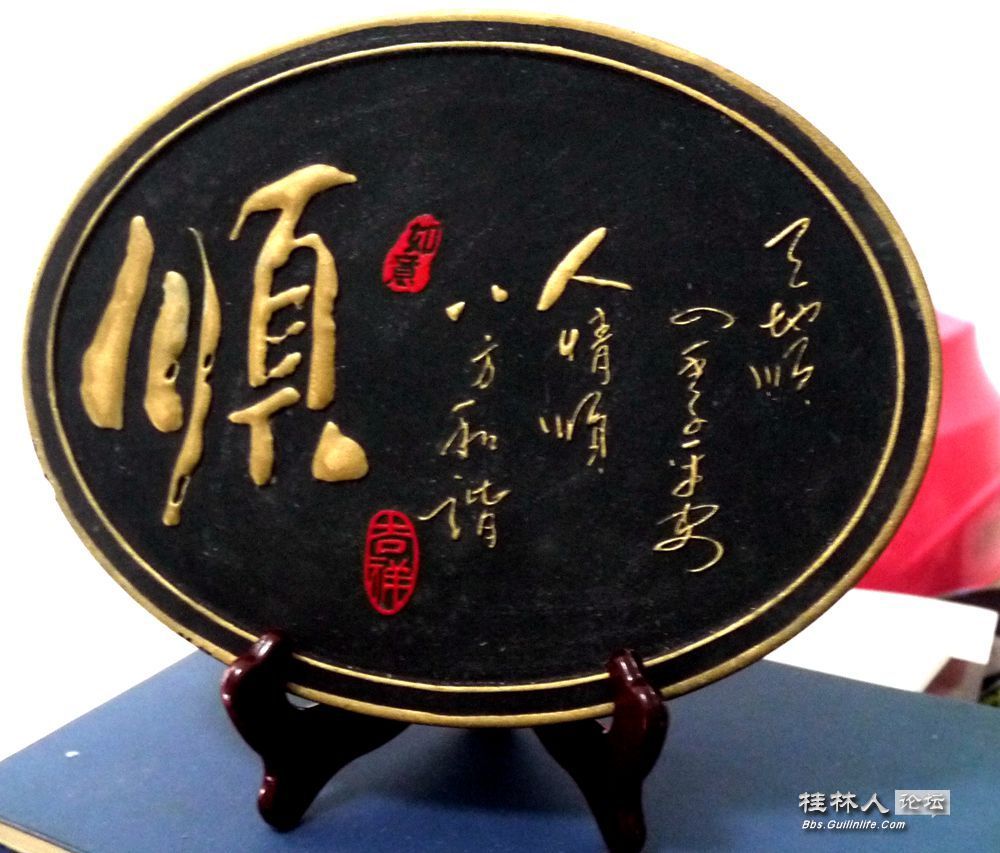 天地顺
四季平安
人情顺
八方和谐
如意
順
吉祥
桂林人论坛
Bbs.Guilinlife.com